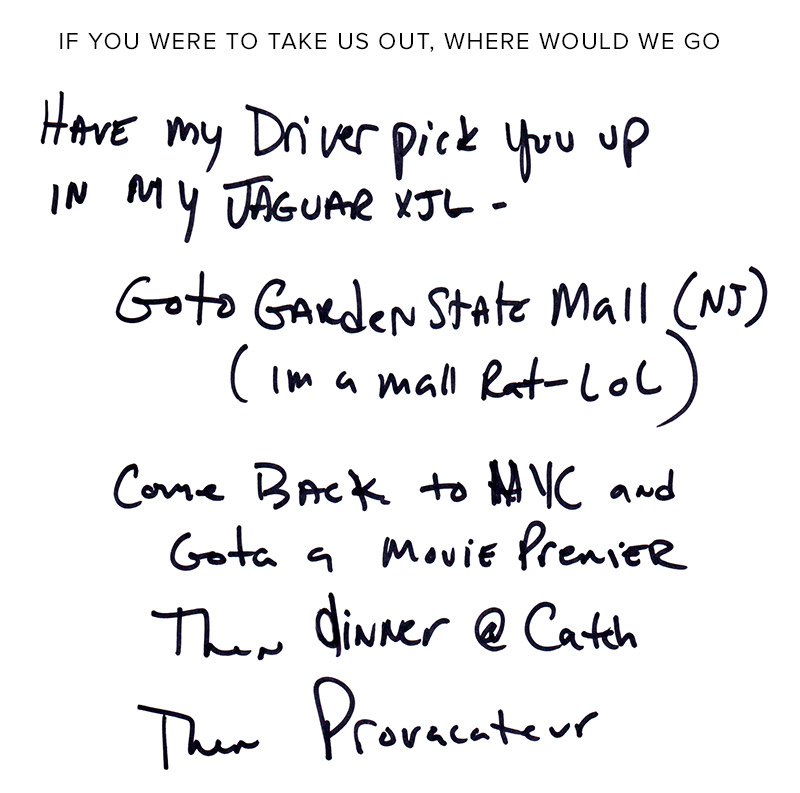 IF YOU WERE TO TAKE US OUT, WHERE WOULD WE GO
HAVE my Driver pick you up
IN MY JAGUAR XJL -
Goto GARdeN StAte Mall (NJ)
( Im a mall Rat- LOL )
Come BACK to NYC and
Gota a MOVIE PremiER
Then dinner @ Catch
Then Provacateur